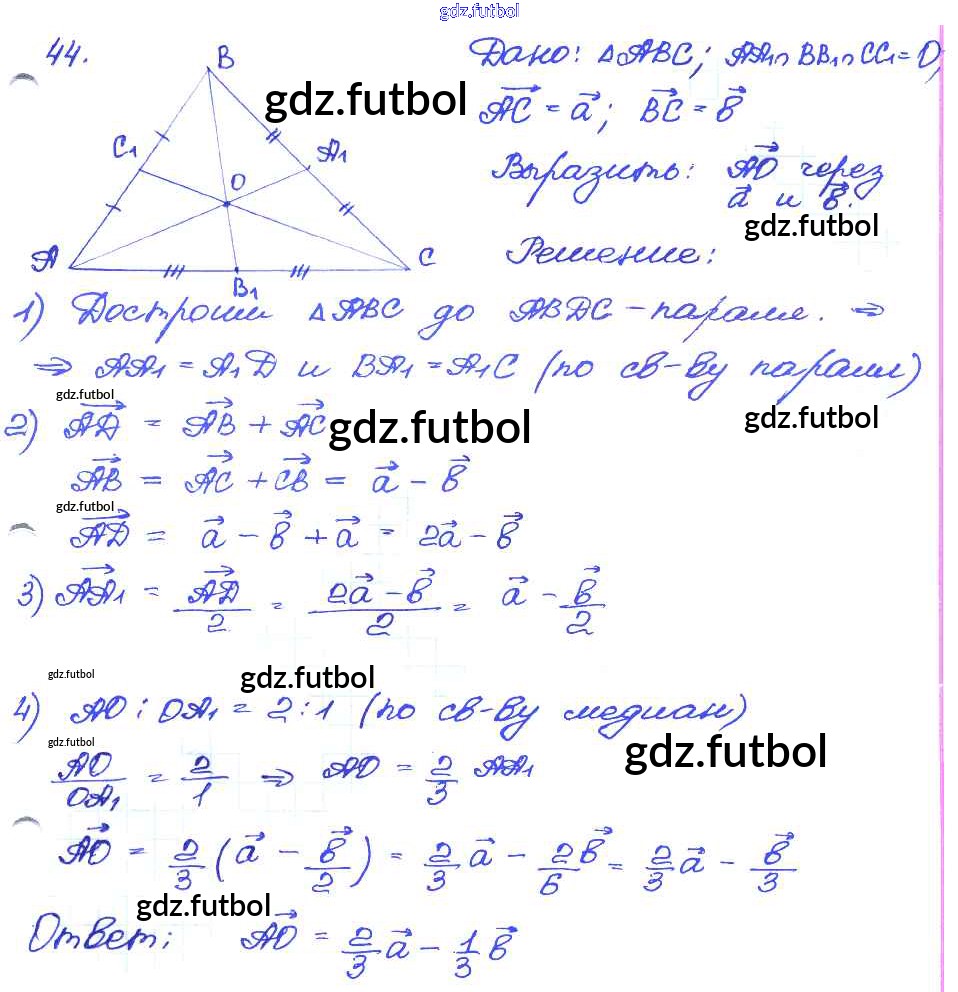 gdz.futbol
44.
B
C₁
A₁
O
A
B₁
C
Дано: △ABC; AA₁∩BB₁∩CC₁=O,
gdz.futbol
AC⃗ = a⃗; BC⃗ = b⃗
Выразить: AO⃗ через
a⃗ и b⃗.
gdz.futbol
Решение:
1) Достроим △ABC до ABDC – паралле. ⇒
⇒ AA₁ = A₁D и BA₁ = A₁C (по св-ву паралл)
gdz.futbol
2) AD⃗ = AB⃗ + AC⃗
gdz.futbol
gdz.futbol
AB⃗ = AC⃗ + CB⃗ = a⃗ – b⃗
gdz.futbol
AD⃗ = a⃗ – b⃗ + a⃗ = 2a⃗ – b⃗
3) AA₁⃗ = AD⃗/2 = (2a⃗ – b⃗)/2 = a⃗ – b⃗/2
gdz.futbol
gdz.futbol
4) AO : OA₁ = 2:1 (по св-ву медиан)
gdz.futbol
gdz.futbol
AO/OA₁ = 2/1 ⇒ AO = 2/3 AA₁
AO⃗ = 2/3 (a⃗ – b⃗/2) = 2/3 a⃗ – 2b⃗/6 = 2/3 a⃗ – b⃗/3
gdz.futbol
Ответ: AO⃗ = 2/3 a⃗ – 1/3 b⃗